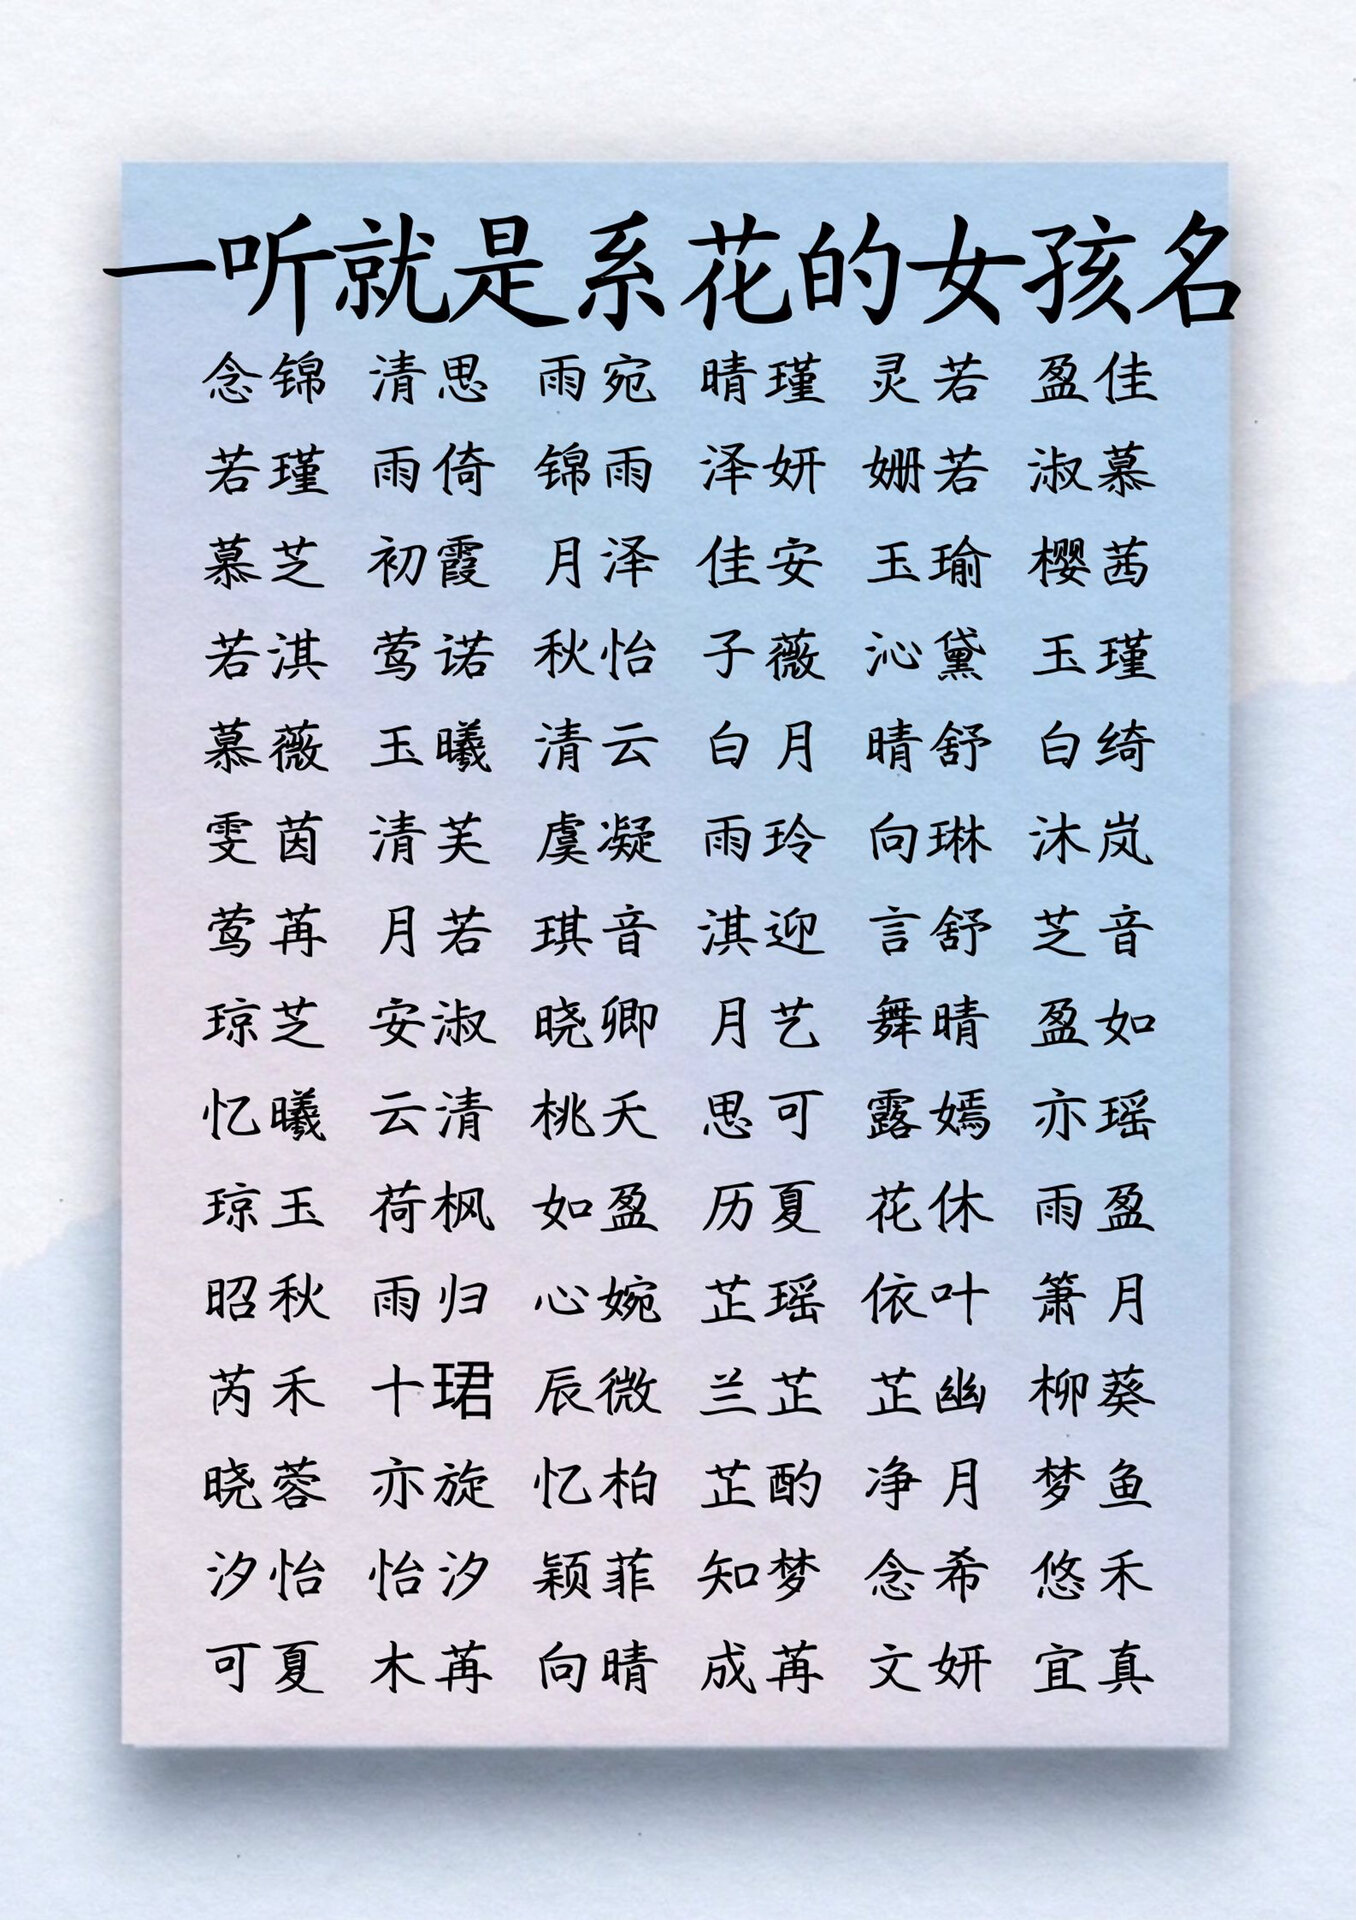 一听就是系花的女孩名
念锦 清思 雨宛 晴瑾 灵若 盈佳
若瑾 雨倚 锦雨 泽妍 姗若 淑慕
慕芝 初霞 月泽 佳安 玉瑜 樱茜
若淇 莺诺 秋怡 子薇 沁黛 玉瑾
慕薇 玉曦 清云 白月 晴舒 白绮
雯茵 清芙 虞凝 雨玲 向琳 沐岚
莺苒 月若 琪音 淇迎 言舒 芝音
琼芝 安淑 晓卿 月艺 舞晴 盈如
忆曦 云清 桃夭 思可 露嫣 亦瑶
琼玉 荷枫 如盈 历夏 花休 雨盈
昭秋 雨归 心婉 芷瑶 依叶 箫月
芮禾 十珺 辰微 兰芷 芷幽 柳葵
晓蓉 亦旋 忆柏 芷酌 净月 梦鱼
汐怡 怡汐 颖菲 知梦 念希 悠禾
可夏 木苒 向晴 成苒 文妍 宜真